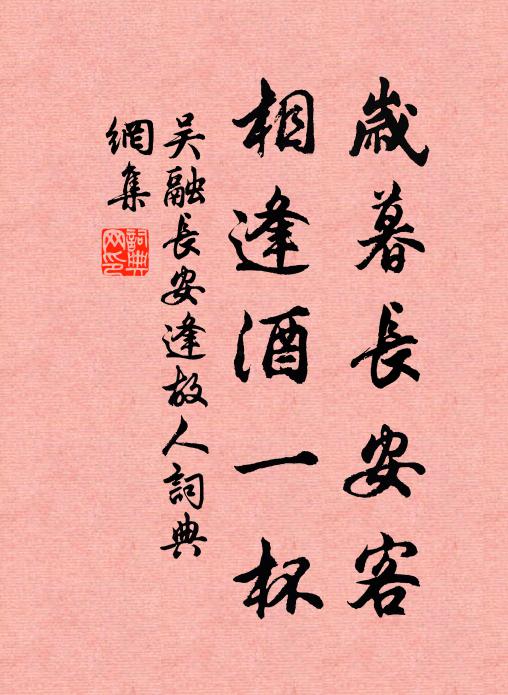 歲暮長安客
相逢酒一杯
吴融長安逢故人詞典
網集
詞典
网印